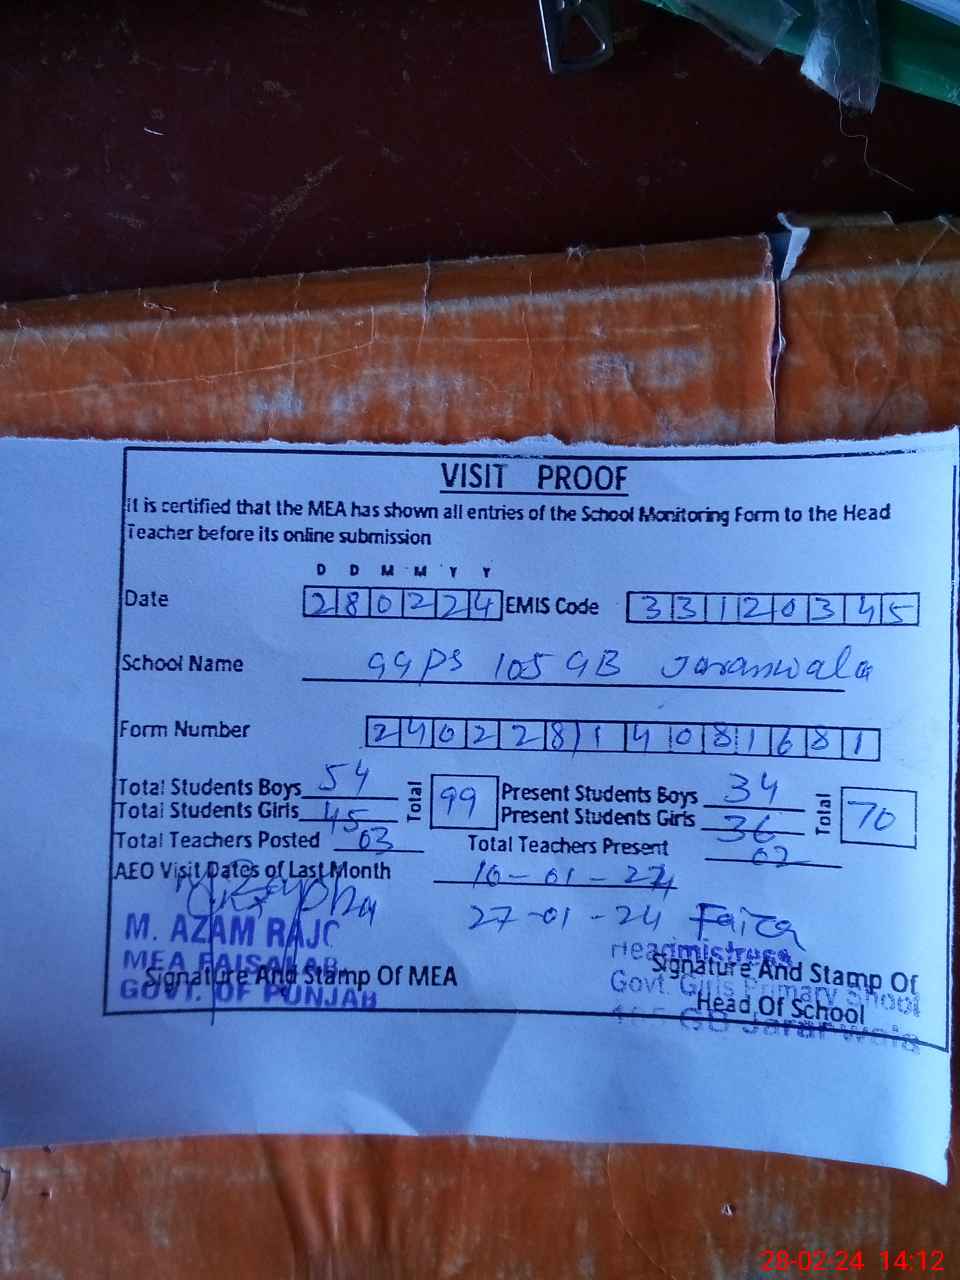 VISIT PROOF
It is certified that the MEA has shown all entries of the School Monitoring Form to the Head
Teacher before its online submission
D D M M Y Y
Date 280224 EMIS Code 33120345
School Name GGPS 105 GB Jaranwala
Form Number 24022814081681
Total Students Boys 54 Total 99 Present Students Boys 34 Total 70
Total Students Girls 45 Present Students Girls 36
Total Teachers Posted 03 Total Teachers Present 02
AEO Visit Dates of Last Month 10-01-24
27-01-24 Faiza
M. AZAM RAJ
MEA FAISALAB
GOVT. OF PUNJAB
Signature And Stamp Of MEA
Headmistress
Govt. Girls Primary School
GB Jaranwala
Signature And Stamp Of
Head Of School
28-02-24 14:12